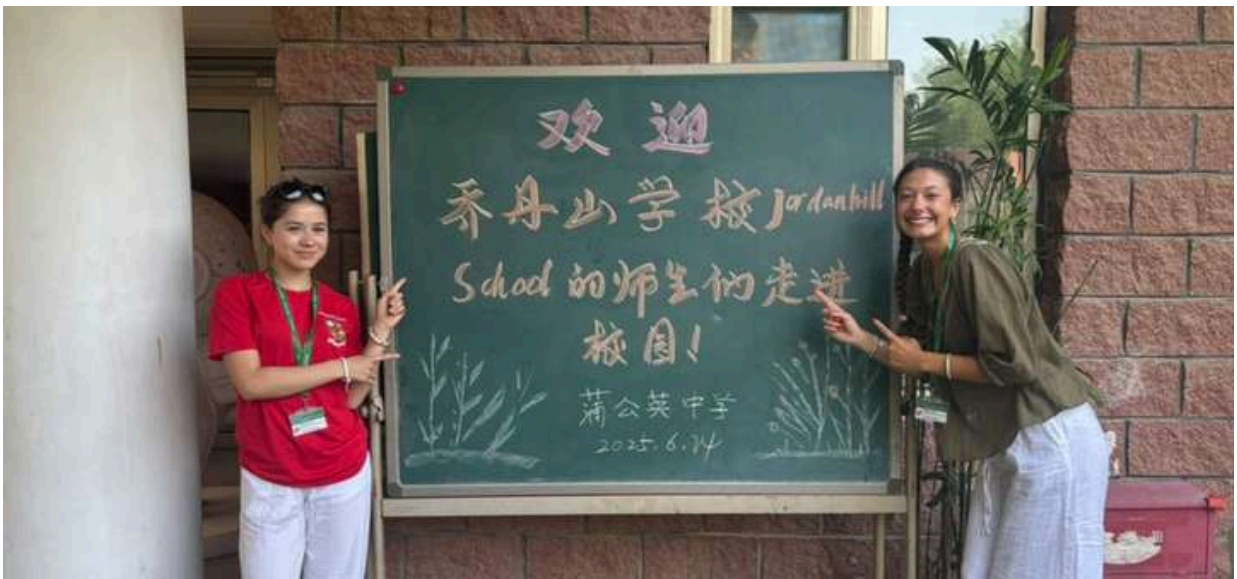 欢迎
乔丹山学校Jordanhill
School的师生们走进
校园!
蒲公英中学
2025.6.24